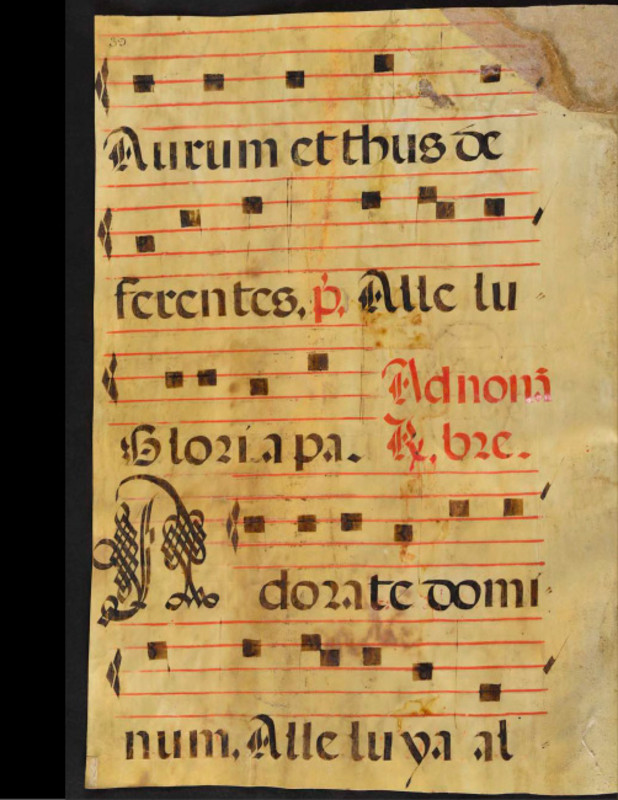 30
Aurum et thus de
ferentes. p. Alle lu
Ad nonā
Gloria pa. R. bre.
Adorate domi
num. Alleluya al